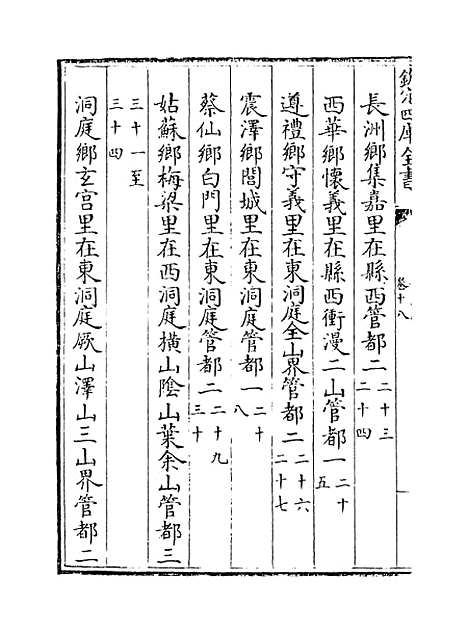 欽定四庫全書
卷十八
長洲鄉集嘉里在縣西管都二二十三二十四
西華鄉懷義里在縣西衝漫二山管都一二十五
遵禮鄉守義里在東洞庭全山界管都二二十六二十七
震澤鄉閭城里在東洞庭管都一二十八
蔡仙鄉白門里在東洞庭管都二二十九三十
姑蘇鄉梅梁里在西洞庭橫山陰山葉余山管都三
三十一至三十四
洞庭鄉玄宫里在東洞庭厥山澤山三山界管都二